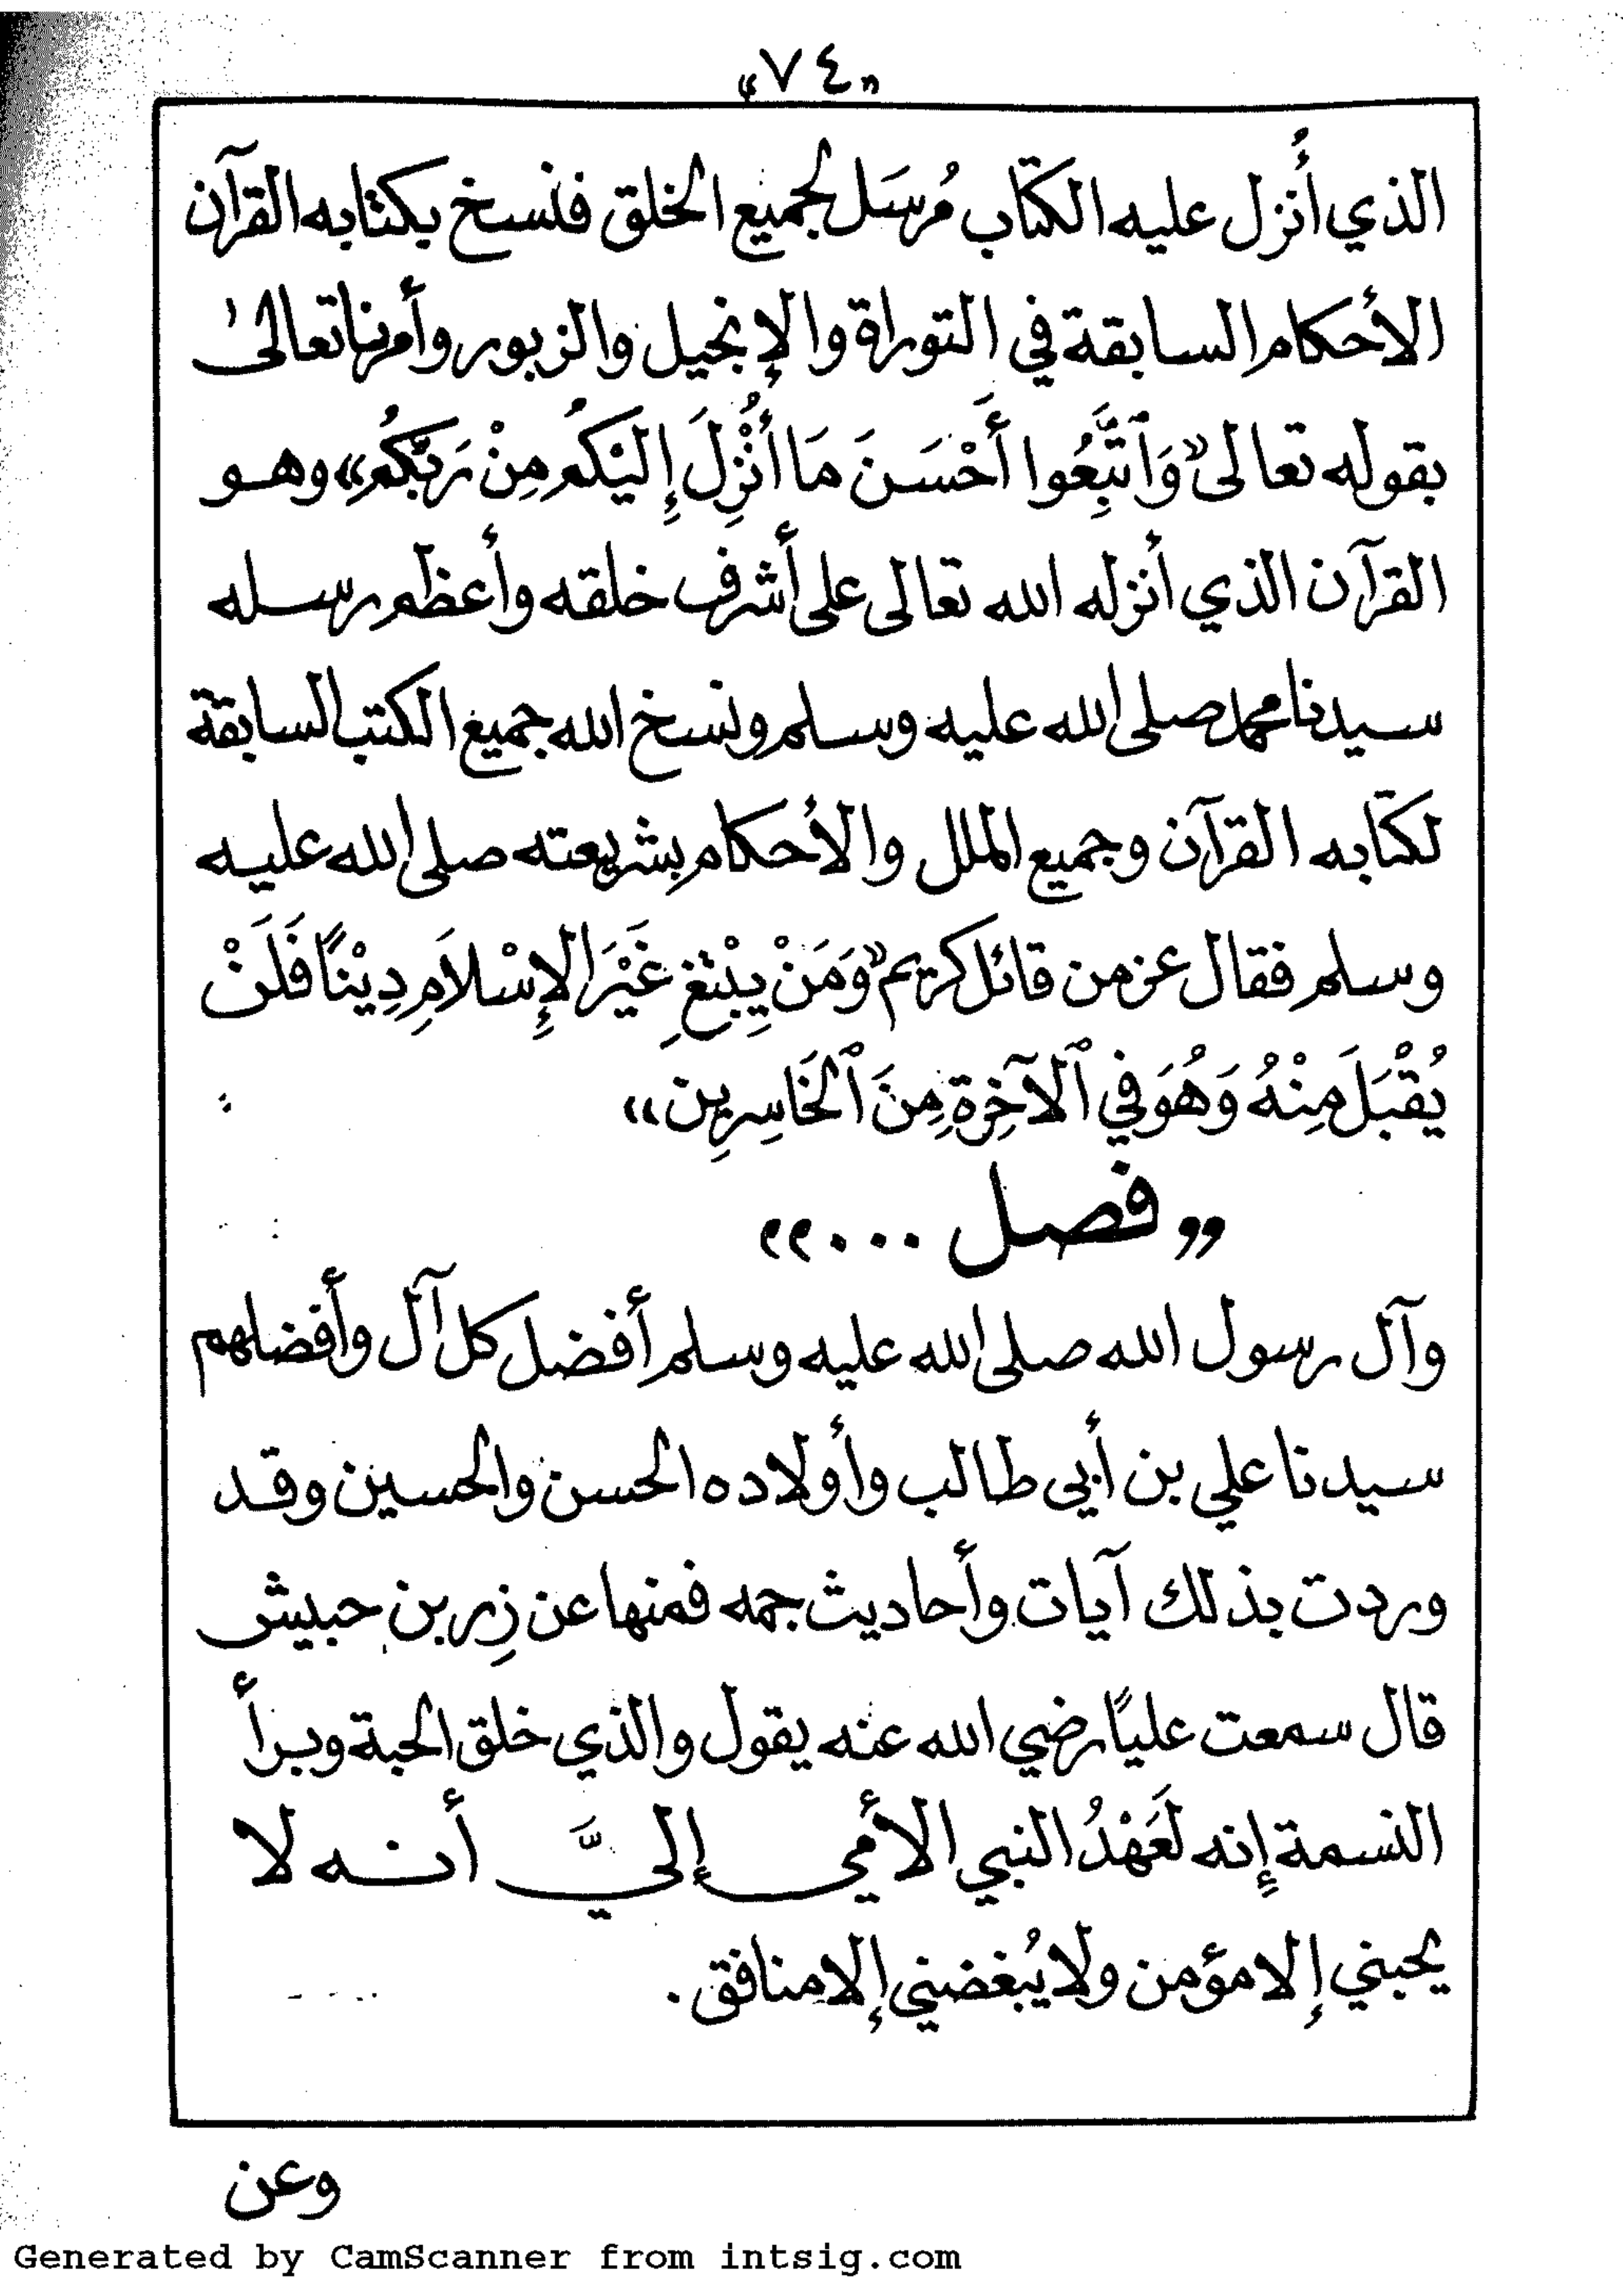 «٧٤»
الذي أُنزل عليه الكتاب مُرسَل لجميع الخلق فنسخ بكتابه القرآن
الأحكام السابقة في التوراة والإنجيل والزبور وأمرنا تعالىٰ
بقوله تعالى «وَٱتَّبِعُوا أَحْسَنَ مَا أُنْزِلَ إِلَيْكُم مِنْ رَبِّكُم» وهو
القرآن الذي أنزله الله تعالى على أشرف خلقه وأعظم رسله
سيدنا محمد صلى الله عليه وسلم ونسخ الله جميع الكتب السابقة
لكتابه القرآن وجميع الملل والأحكام بشريعته صلى الله عليه
وسلم فقال عز من قائل كريم «وَمَنْ يَبْتَغِ غَيْرَ الإِسْلاَمِ دِيْنًا فَلَنْ
يُقْبَلَ مِنْهُ وَهُوَ فِي ٱلآخِرَةِ مِنَ ٱلْخَاسِرِين»
«فصل ...»
وآل رسول الله صلى الله عليه وسلم أفضل كل آل وأفضلهم
سيدنا علي بن أبي طالب وأولاده الحسن والحسين وقد
وردت بذلك آيات وأحاديث جمه فمنها عن زِر بن حبيش
قال سمعت عليًا رضي الله عنه يقول والذي خلق الحبة وبرأ
النسمة إنه لَعَهْدُ النبي الأمي إليَّ أنه لا
يحبني إلا مؤمن ولا يُبغضني إلا منافق.
وعن
Generated by CamScanner from intsig.com